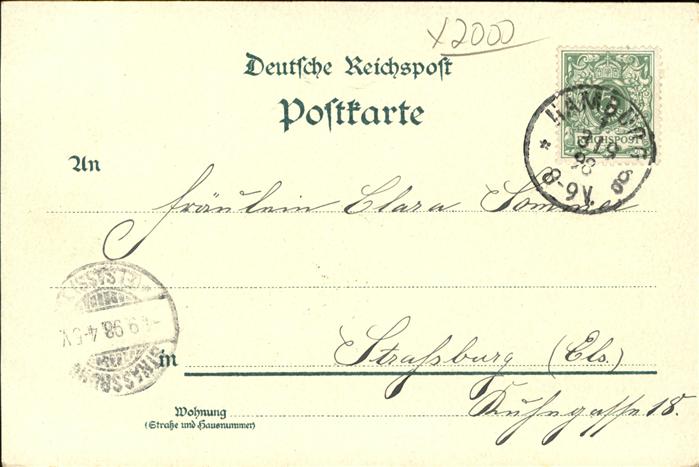 x2000
Deutsche Reichspost
Postkarte
HAMBURG
3/9
98
8-9V.
REICHSPOST
An
Fräulein Clara Sommer
STRASSBURG
(ELSASS)
4.9.98.4-5V.
in Straßburg (Els.)
Wohnung
(Straße und Hausnummer)
Kuhngasse 18.